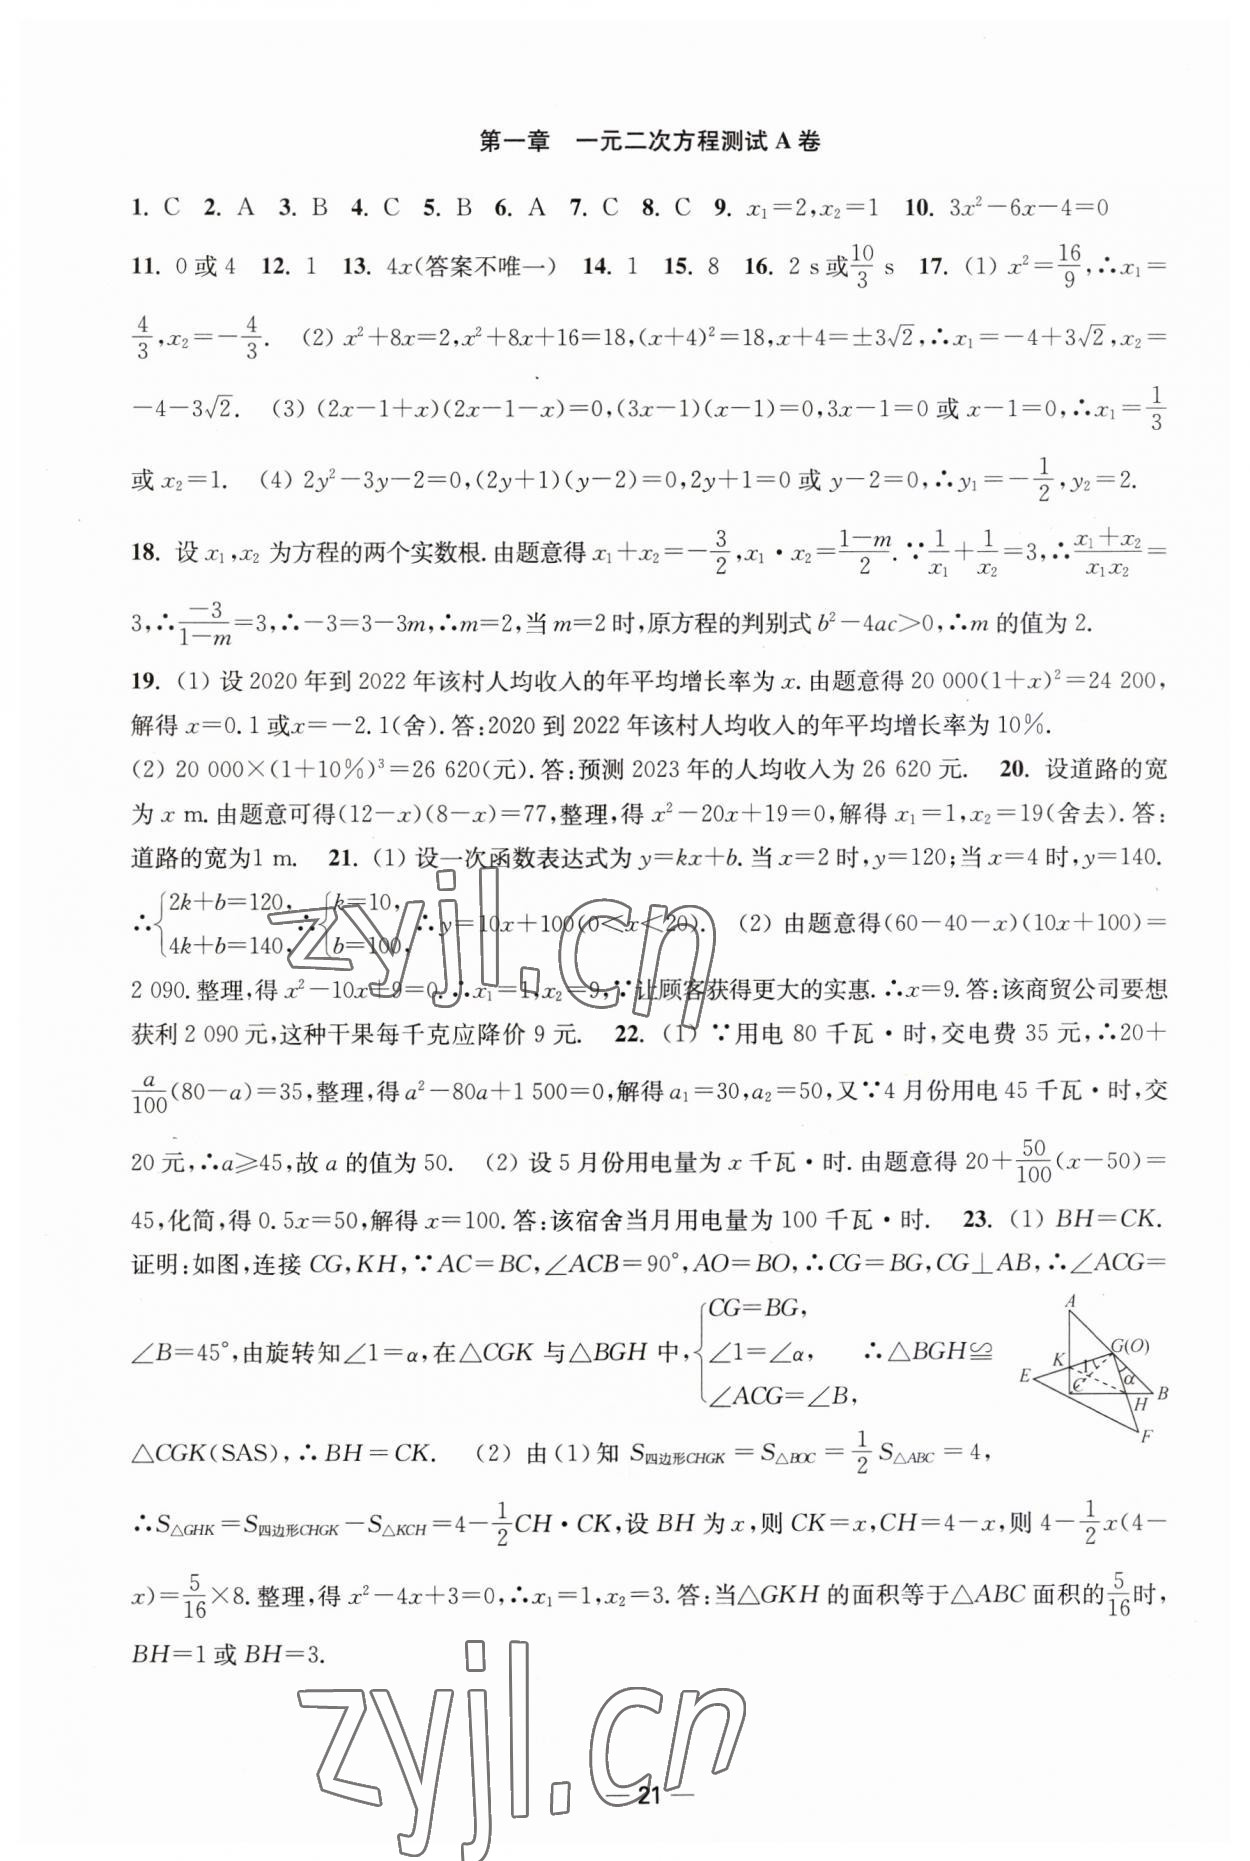 第一章　一元二次方程测试 A 卷
1. C 2. A 3. B 4. C 5. B 6. A 7. C 8. C 9. x₁=2,x₂=1 10. 3x²-6x-4=0
11. 0 或 4 12. 1 13. 4x(答案不唯一) 14. 1 15. 8 16. 2 s或10/3 s 17. (1) x²=16/9,∴x₁=
4/3,x₂=-4/3. (2) x²+8x=2,x²+8x+16=18,(x+4)²=18,x+4=±3√2,∴x₁=-4+3√2,x₂=
-4-3√2. (3) (2x-1+x)(2x-1-x)=0,(3x-1)(x-1)=0,3x-1=0 或 x-1=0,∴x₁=1/3
或 x₂=1. (4) 2y²-3y-2=0,(2y+1)(y-2)=0,2y+1=0 或 y-2=0,∴y₁=-1/2,y₂=2.
18. 设 x₁,x₂ 为方程的两个实数根.由题意得 x₁+x₂=-3/2,x₁·x₂=(1-m)/2.∵1/x₁+1/x₂=3,∴(x₁+x₂)/(x₁x₂)=
3,∴-3/(1-m)=3,∴-3=3-3m,∴m=2,当 m=2 时,原方程的判别式 b²-4ac>0,∴m 的值为 2.
19. (1) 设 2020 年到 2022 年该村人均收入的年平均增长率为 x.由题意得 20 000(1+x)²=24 200,
解得 x=0.1 或x=-2.1(舍).答:2020 到 2022 年该村人均收入的年平均增长率为 10%.
(2) 20 000×(1+10%)³=26 620(元).答:预测 2023 年的人均收入为 26 620 元. 20. 设道路的宽
为 x m.由题意可得(12-x)(8-x)=77,整理,得 x²-20x+19=0,解得 x₁=1,x₂=19(舍去).答:
道路的宽为1 m. 21. (1) 设一次函数表达式为 y=kx+b.当 x=2 时,y=120;当 x=4 时,y=140.
∴{2k+b=120, 4k+b=140,∴{k=10, b=100,∴y=10x+100(0<x<20). (2) 由题意得(60-40-x)(10x+100)=
2 090.整理,得 x²-10x+9=0.∴x₁=1,x₂=9,∵让顾客获得更大的实惠.∴x=9.答:该商贸公司要想
获利 2 090 元,这种干果每千克应降价 9 元. 22. (1) ∵用电 80 千瓦·时,交电费 35 元,∴20+
a/100(80-a)=35,整理,得 a²-80a+1 500=0,解得 a₁=30,a₂=50,又∵4 月份用电 45 千瓦·时,交
20 元,∴a≥45,故 a 的值为 50. (2) 设 5 月份用电量为 x 千瓦·时.由题意得 20+50/100(x-50)=
45,化简,得 0.5x=50,解得 x=100.答:该宿舍当月用电量为 100 千瓦·时. 23. (1) BH=CK.
证明:如图,连接 CG,KH,∵AC=BC,∠ACB=90°,AO=BO,∴CG=BG,CG⊥AB,∴∠ACG=
∠B=45°,由旋转知∠1=α,在△CGK 与△BGH 中,{CG=BG, ∠1=∠α, ∠ACG=∠B, ∴△BGH≌
A
G(O)
K
1
E
α
C
B
H
F
△CGK(SAS),∴BH=CK. (2) 由(1)知 S四边形CHGK=S△BOC=1/2 S△ABC=4,
∴S△GHK=S四边形CHGK-S△KCH=4-1/2CH·CK,设 BH 为 x,则 CK=x,CH=4-x,则 4-1/2x(4-
x)=5/16×8.整理,得 x²-4x+3=0,∴x₁=1,x₂=3.答:当△GKH 的面积等于△ABC 面积的5/16时,
BH=1 或 BH=3.
zyjl.cn
zyjl.cn
— 21 —